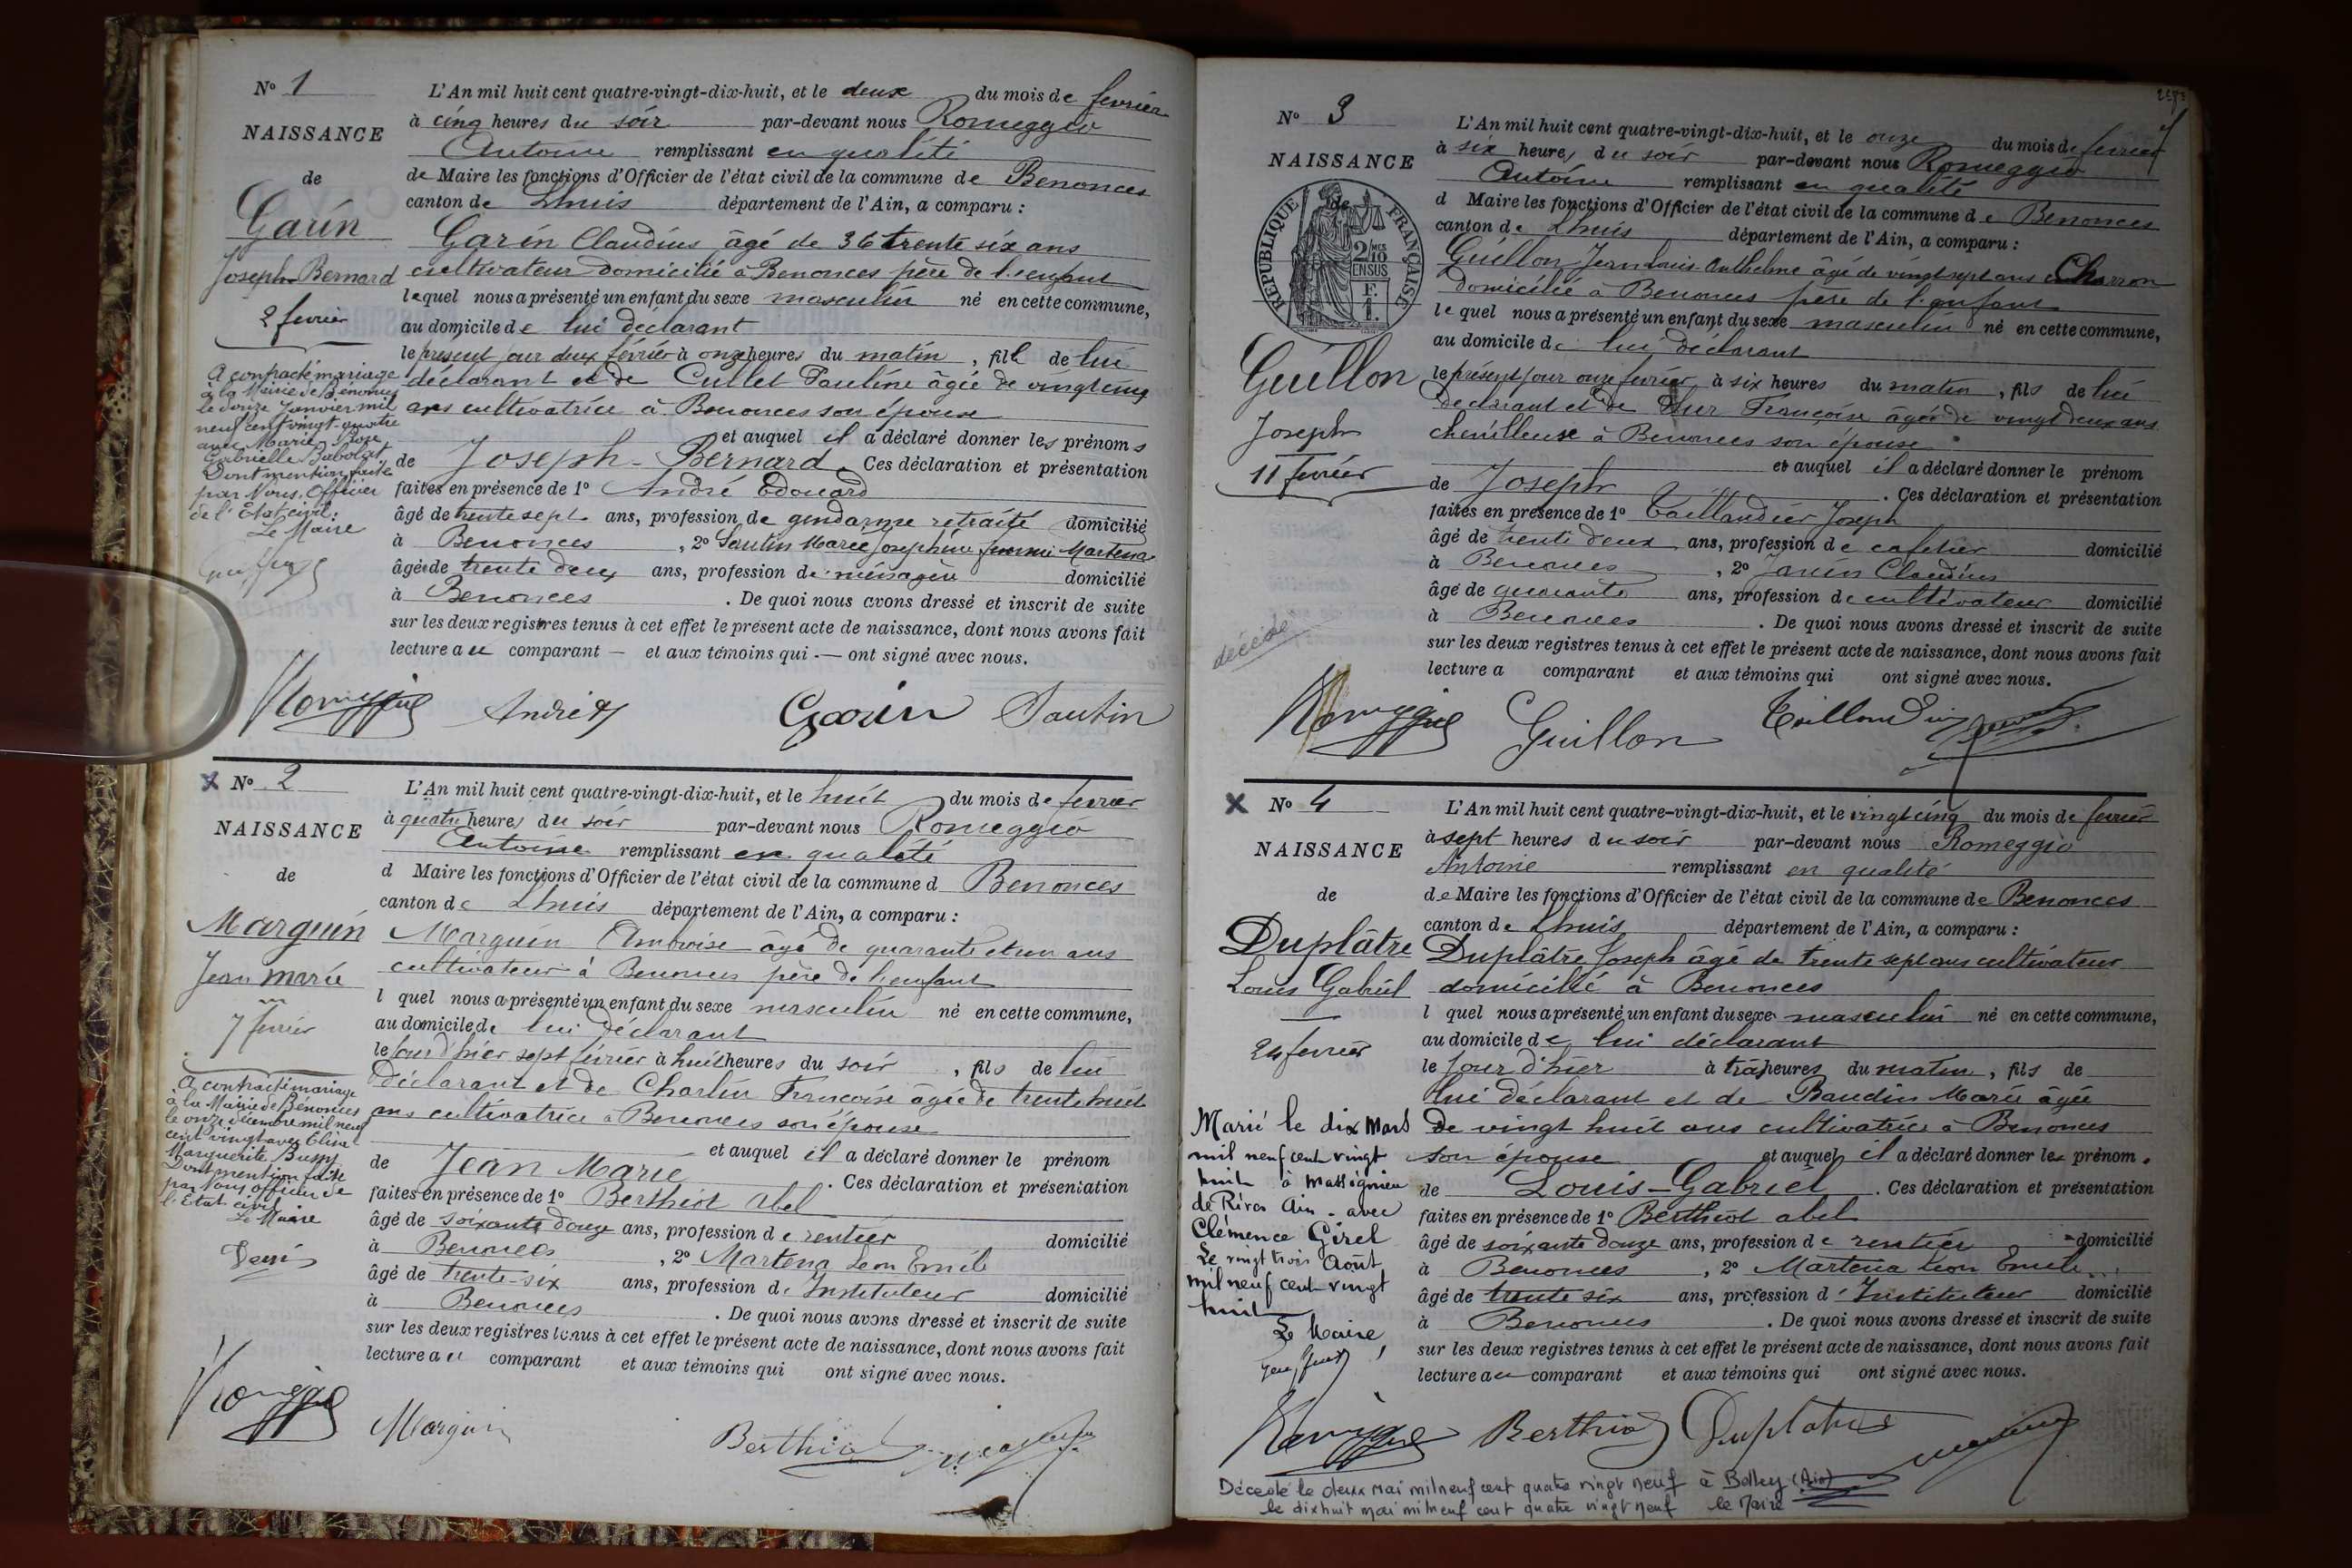 N° 1
NAISSANCE
de
Garin
Joseph-Bernard
2 fevrier
A contracté mariage
à la Mairie de Bénonces
le douze Janvier mil
neuf cent vingt-quatre
avec Marie Rose
Gabrielle Babolat
Dont mention faite
par Nous, Officier
de l'Etat civil.
Le Maire
L'An mil huit cent quatre-vingt-dix-huit, et le deux du mois de fevrier
à cinq heures du soir par-devant nous Romeggio
Antoine remplissant en qualité
de Maire les fonctions d'Officier de l'état civil de la commune de Benonces
canton de Lhuis département de l'Ain, a comparu :
Garin Claudius âgé de 36 trente six ans
cultivateur domicilié à Benonces père de l'enfant
lequel nous a présenté un enfant du sexe masculin né en cette commune,
au domicile de lui déclarant
le présent jour deux février à onze heures du matin, fils de lui
déclarant et de Cullet Pauline âgée de vingt cinq
ans cultivatrice à Benonces son épouse
et auquel il a déclaré donner les prénoms
de Joseph-Bernard. Ces déclaration et présentation
faites en présence de 1° André Edouard
âgé de trente sept ans, profession de gendarme retraité domicilié
à Benonces, 2° Sautin Marie Joséphine femme Martena
âgée de trente deux ans, profession de ménagère domicilié
à Benonces. De quoi nous avons dressé et inscrit de suite
sur les deux registres tenus à cet effet le présent acte de naissance, dont nous avons fait
lecture au comparant — et aux témoins qui — ont signé avec nous.
Romeggio André Garin Sautin
X N° 2
NAISSANCE
de
Marguin
Jean Marie
7 fevrier
A contracté mariage
à la Mairie de Bénonces
le onze décembre mil neuf
cent vingt avec Elise
Marguerite Bussy
Dont mention faite
par Nous officier de
l'Etat civil
Le Maire
L'An mil huit cent quatre-vingt-dix-huit, et le huit du mois de fevrier
à quatre heures du soir par-devant nous Romeggio
Antoine remplissant en qualité
d Maire les fonctions d'Officier de l'état civil de la commune d Benonces
canton de Lhuis département de l'Ain, a comparu :
Marguin Ambroise âgé de quarante et un ans
cultivateur à Benonces père de l'enfant
l quel nous a présenté un enfant du sexe masculin né en cette commune,
au domicile de lui déclarant
le jour d'hier sept février à huit heures du soir, fils de lui
déclarant et de Charlin Francoise âgée de trente huit
ans cultivatrice à Benonces son épouse
et auquel il a déclaré donner le prénom
de Jean Marie. Ces déclaration et présentation
faites en présence de 1° Berthiot Abel
âgé de soixante douze ans, profession de rentier domicilié
à Benonces, 2° Martena Leon Emile
âgé de trente-six ans, profession d'Instituteur domicilié
à Benonces. De quoi nous avons dressé et inscrit de suite
sur les deux registres tenus à cet effet le présent acte de naissance, dont nous avons fait
lecture au comparant et aux témoins qui ont signé avec nous.
Romeggio Marguin Berthiot
N° 3
NAISSANCE
de
REPUBLIQUE FRANÇAISE
2/10 EN SUS
Guillon
Joseph
11 fevrier
décédé
L'An mil huit cent quatre-vingt-dix-huit, et le onze du mois de fevrier
à six heures du soir par-devant nous Romeggio
Antoine remplissant en qualité
d Maire les fonctions d'Officier de l'état civil de la commune de Benonces
canton de Lhuis département de l'Ain, a comparu :
Guillon Jean louis Anthelme âgé de vingt sept ans Charron
domicilié à Benonces père de l'enfant
lequel nous a présenté un enfant du sexe masculin né en cette commune,
au domicile de lui déclarant
le présent jour onze fevrier, à six heures du matin, fils de lui
déclarant et de Françoise âgée de vingt deux ans
chenilleuse à Benonces son épouse
et auquel il a déclaré donner le prénom
de Joseph. Ces déclaration et présentation
faites en présence de 1° Taillandier Joseph
âgé de trente deux ans, profession de cafetier domicilié
à Benonces, 2° Janin Claudius
âgé de quarante ans, profession de cultivateur domicilié
à Benonces. De quoi nous avons dressé et inscrit de suite
sur les deux registres tenus à cet effet le présent acte de naissance, dont nous avons fait
lecture a comparant et aux témoins qui ont signé avec nous.
Romeggio Guillon Taillandier
X N° 4
NAISSANCE
de
Duplâtre
Louis Gabriel
24 fevrier
Marié le dix Mars
mil neuf cent vingt
huit à Massignieu
de Rives Ain - avec
Clémence Girel
Le vingt trois Août
mil neuf cent vingt
huit
Le Maire,
L'An mil huit cent quatre-vingt-dix-huit, et le vingt cinq du mois de fevrier
à sept heures du soir par-devant nous Romeggio
Antoine remplissant en qualité
de Maire les fonctions d'Officier de l'état civil de la commune de Benonces
canton de Lhuis département de l'Ain, a comparu :
Duplâtre Joseph âgé de trente sept ans cultivateur
domicilié à Benonces
l quel nous a présenté un enfant du sexe masculin né en cette commune,
au domicile de lui déclarant
le jour d'hier à trois heures du matin, fils de
lui déclarant et de Baudin Marie âgée
de vingt huit ans cultivatrice à Benonces
son épouse et auquel il a déclaré donner les prénom.
de Louis-Gabriel. Ces déclaration et présentation
faites en présence de 1° Berthiot abel
âgé de soixante douze ans, profession de rentier domicilié
à Benonces, 2° Martena Leon Emile
âgé de trente six ans, profession d'Instituteur domicilié
à Benonces. De quoi nous avons dressé et inscrit de suite
sur les deux registres tenus à cet effet le présent acte de naissance, dont nous avons fait
lecture au comparant et aux témoins qui ont signé avec nous.
Romeggio Berthiot Duplatre
Décédé le deux mai mil neuf cent quatre vingt neuf à Belley (Ain)
le dix huit mai mil neuf cent quatre vingt neuf le Maire